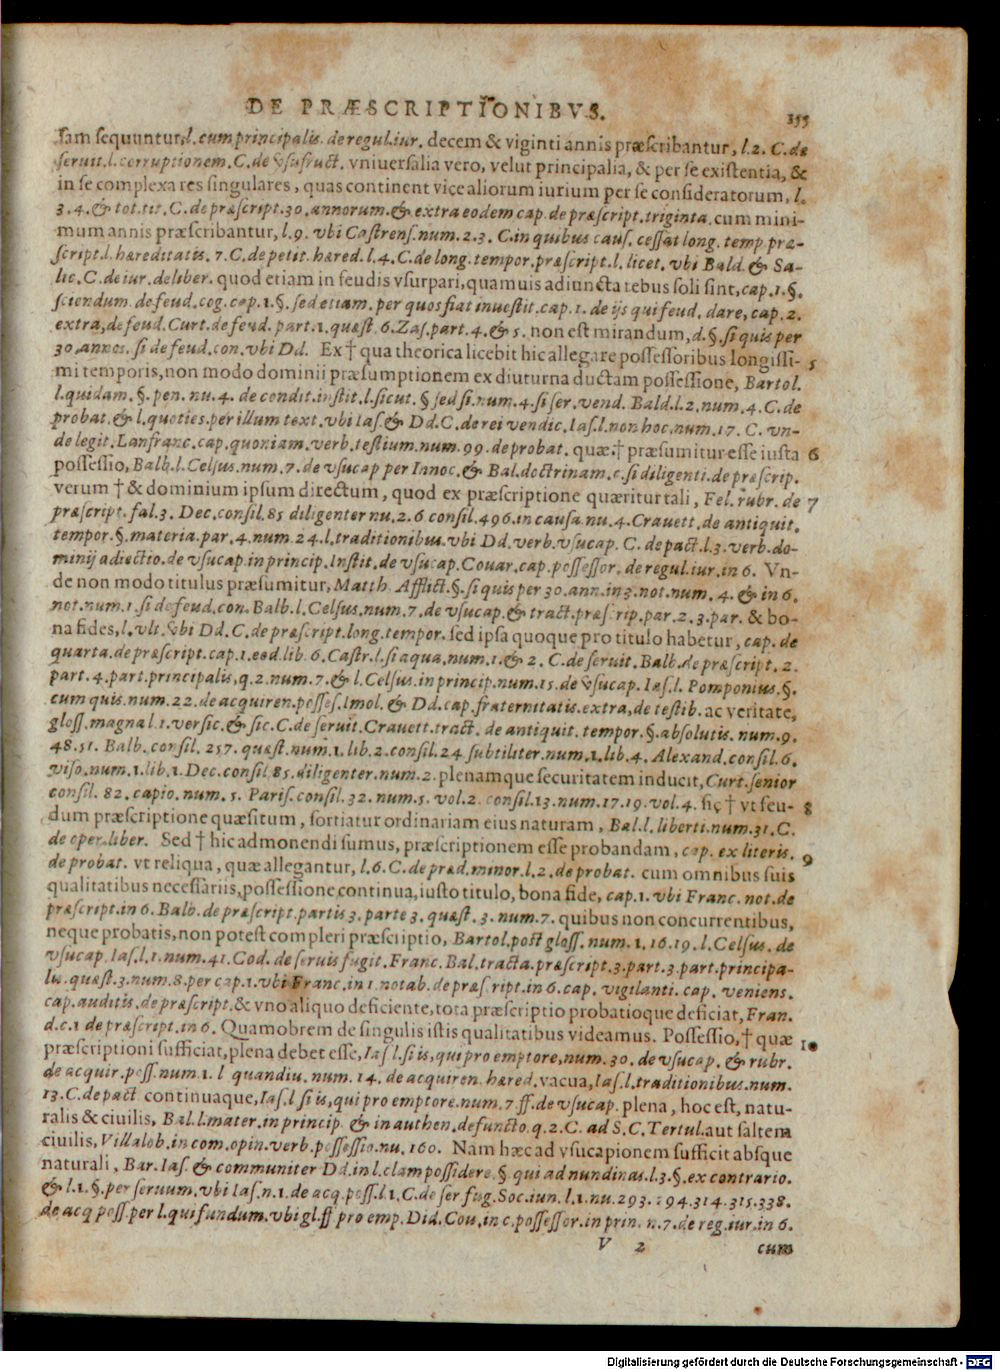 DE PRÆSCRIPTIONIBVS.
355
sam sequuntur, l. cum principalis. de regul. iur. decem & viginti annis præscribantur, l. 2. C. de
seruit. l. corruptionem. C. de vsufruct. vniuersalia vero, velut principalia, & per se existentia, &
in se complexa res singulares, quas continent vice aliorum iurium per se consideratorum, l.
3. 4. & tot. tit. C. de præscript. 30. annorum. & extra eodem cap. de præscript. triginta. cum mini-
mum annis præscribantur, l. 9. vbi Castrens. num. 2. 3. C. in quibus caus. cessat long. temp. præ-
script. l. hæreditatis. 7. C. de petit. hæred. l. 4. C. de long. tempor. præscript. l. licet. vbi Bald. & Sa-
lic. C. de iur. deliber. quod etiam in feudis vsurpari, quamuis adiuncta rebus soli sint, cap. 1. §.
sciendum. de feud. cog. cap. 1. §. sed etiam. per quos fiat inuestit. cap. 1. de ijs qui feud. dare, cap. 2.
extra, de feud. Curt. de feud. part. 1. quæst. 6. Zas. part. 4. & 5. non est mirandum, d. §. si quis per
30. annos. si de feud. con. vbi Dd. Ex † qua theorica licebit hic allegare possessoribus longissi- 5
mi temporis, non modo dominii præsumptionem ex diuturna ductam possessione, Bartol.
l. quidam. §. pen. nu. 4. de condit. instit. l. sicut. § sed si. num. 4. si ser. vend. Bald. l. 2. num. 4. C. de
probat. & l. quoties. per illum text. vbi Ias. & Dd. C. de rei vendic. Ias. l. non hoc. num. 17. C. vn-
de legit. Lanfranc. cap. quoniam. verb. testium. num. 99. de probat. quæ † præsumitur esse iusta 6
possessio, Balb. l. Celsus. num. 7. de vsucap per Innoc. & Bal. doctrinam. c. si diligenti. de præscrip.
verum † & dominium ipsum directum, quod ex præscriptione quæritur tali, Fel. rubr. de 7
præscript. fal. 3. Dec. consil. 85 diligenter nu. 2. 6 consil. 496. in causa. nu. 4. Crauett. de antiquit.
tempor. §. materia. par. 4. num. 24. l. traditionibus. vbi Dd. verb. vsucap. C. de pact. l. 3. verb. do-
minij adiectio. de vsucap. in princip. Instit. de vsucap. Couar. cap. possessor. de regul. iur. in 6. Vn-
de non modo titulus præsumitur, Matth. Afflict. §. si quis per 30. ann. in 3. not. num. 4. & in 6.
not. num. 1. si de feud. con. Balb. l. Celsus. num. 7. de vsucap. & tract. præscrip. par. 2. 3. par. & bo-
na fides, l. vlt. vbi Dd. C. de præscript. long. tempor. sed ipsa quoque pro titulo habetur, cap. de
quarta. de præscript. cap. 1. eod. lib. 6. Castr. l. si aqua. num. 1. & 2. C. de seruit. Balb. de præscript. 2.
part. 4. part. principalis, q. 2. num. 7. & l. Celsus. in princip. num. 15. de vsucap. Ias. l. Pomponius. §.
cum quis. num. 22. de acquiren. posses. Imol. & Dd. cap. fraternitatis. extra, de testib. ac veritate,
gloss. magna l. 1. versic. & sic. C. de seruit. Crauett. tract. de antiquit. tempor. §. absolutis. num. 9.
48. 51. Balb. consil. 257. quæst. num. 1. lib. 2. consil. 24 subtiliter. num. 1. lib. 4. Alexand. consil. 6.
viso. num. 1. lib. 1. Dec. consil. 85. diligenter. num. 2. plenamque securitatem inducit, Curt. senior
consil. 82. capio. num. 5. Paris. consil. 32. num. 5. vol. 2. consil. 13. num. 17. 19. vol. 4. sic † vt feu- 8
dum præscriptione quæsitum, sortiatur ordinariam eius naturam, Bal. l. liberti. num. 31. C.
de oper. liber. Sed † hic admonendi sumus, præscriptionem esse probandam, cap. ex literis. 9
de probat. vt reliqua, quæ allegantur, l. 6. C. de præd. minor. l. 2. de probat. cum omnibus suis
qualitatibus necessariis, possessione continua, iusto titulo, bona fide, cap. 1. vbi Franc. not. de
præscript. in 6. Balb. de præscript. partis 3. parte 3. quæst. 3. num. 7. quibus non concurrentibus,
neque probatis, non potest compleri præscriptio, Bartol. post gloss. num. 1. 16. 19. l. Celsus. de
vsucap. Ias. l. 1. num. 41. Cod. de seruis fugit. Franc. Bal. tracta. præscript. 3. part. 3. part. principa-
lis. quæst. 3. num. 8. per cap. 1. vbi Franc. in 1. notab. de præscript. in 6. cap. vigilanti. cap. veniens.
cap. auditis. de præscript. & vno aliquo deficiente, tota præscriptio probatioque deficiat, Fran.
d. c. 1 de præscript. in 6. Quamobrem de singulis istis qualitatibus videamus. Possessio, † quæ 10
præscriptioni sufficiat, plena debet esse, Ias l. si is, qui pro emptore, num. 30. de vsucap. & rubr.
de acquir. poss. num. 1. l quandiu. num. 14. de acquiren. hæred. vacua, Ias. l. traditionibus. num.
13. C. de pact continuaque, Ias. l si is, qui pro emptore. num. 7. ff. de vsucap. plena, hoc est, natu-
ralis & ciuilis, Bal. l. mater. in princip. & in authen. defuncto. q. 2. C. ad S. C. Tertul. aut saltem
ciuilis, Villalob. in com. opin. verb. possessio. nu. 160. Nam hæc ad vsucapionem sufficit absque
naturali, Bar. Ias. & communiter Dd. in l. clam possidere. § qui ad nundinas. l. 3. §. ex contrario.
& l. 1. §. per seruum. vbi Ias. n. 1. de acq. poss. l. 1. C. de ser fug. Soc. iun. l. 1. nu. 293. 294. 314. 315. 338.
de acq poss. per l. qui fundum. vbi gl. ff pro emp. Did. Cou. in c. possessor. in prin. n. 7. de reg. iur. in 6.
V 2
cum
Digitalisierung gefördert durch die Deutsche Forschungsgemeinschaft - DFG